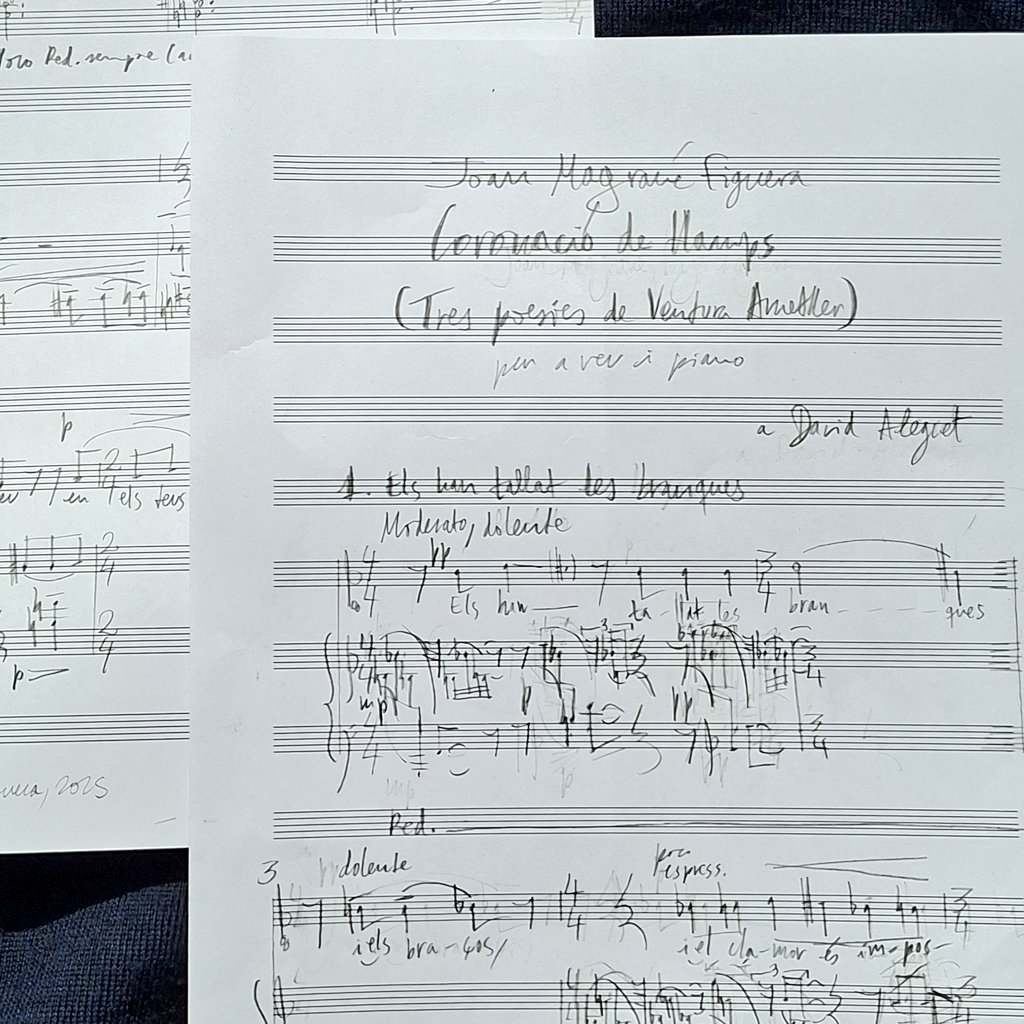 Ped. sempre
p
en els teus
p
2025
Joan Magrané Figuera
Coronació de llamps
(Tres poesies de Ventura Ametller)
per a veu i piano
a David Alegret
1. Els han tallat les branques
Moderato, dolente
pp
Els han ta-llat les bran- - - - ques
mp p pp
Ped.
3 dolente poco espress.
i els bra-ços, i el cla-mor és im-pos-